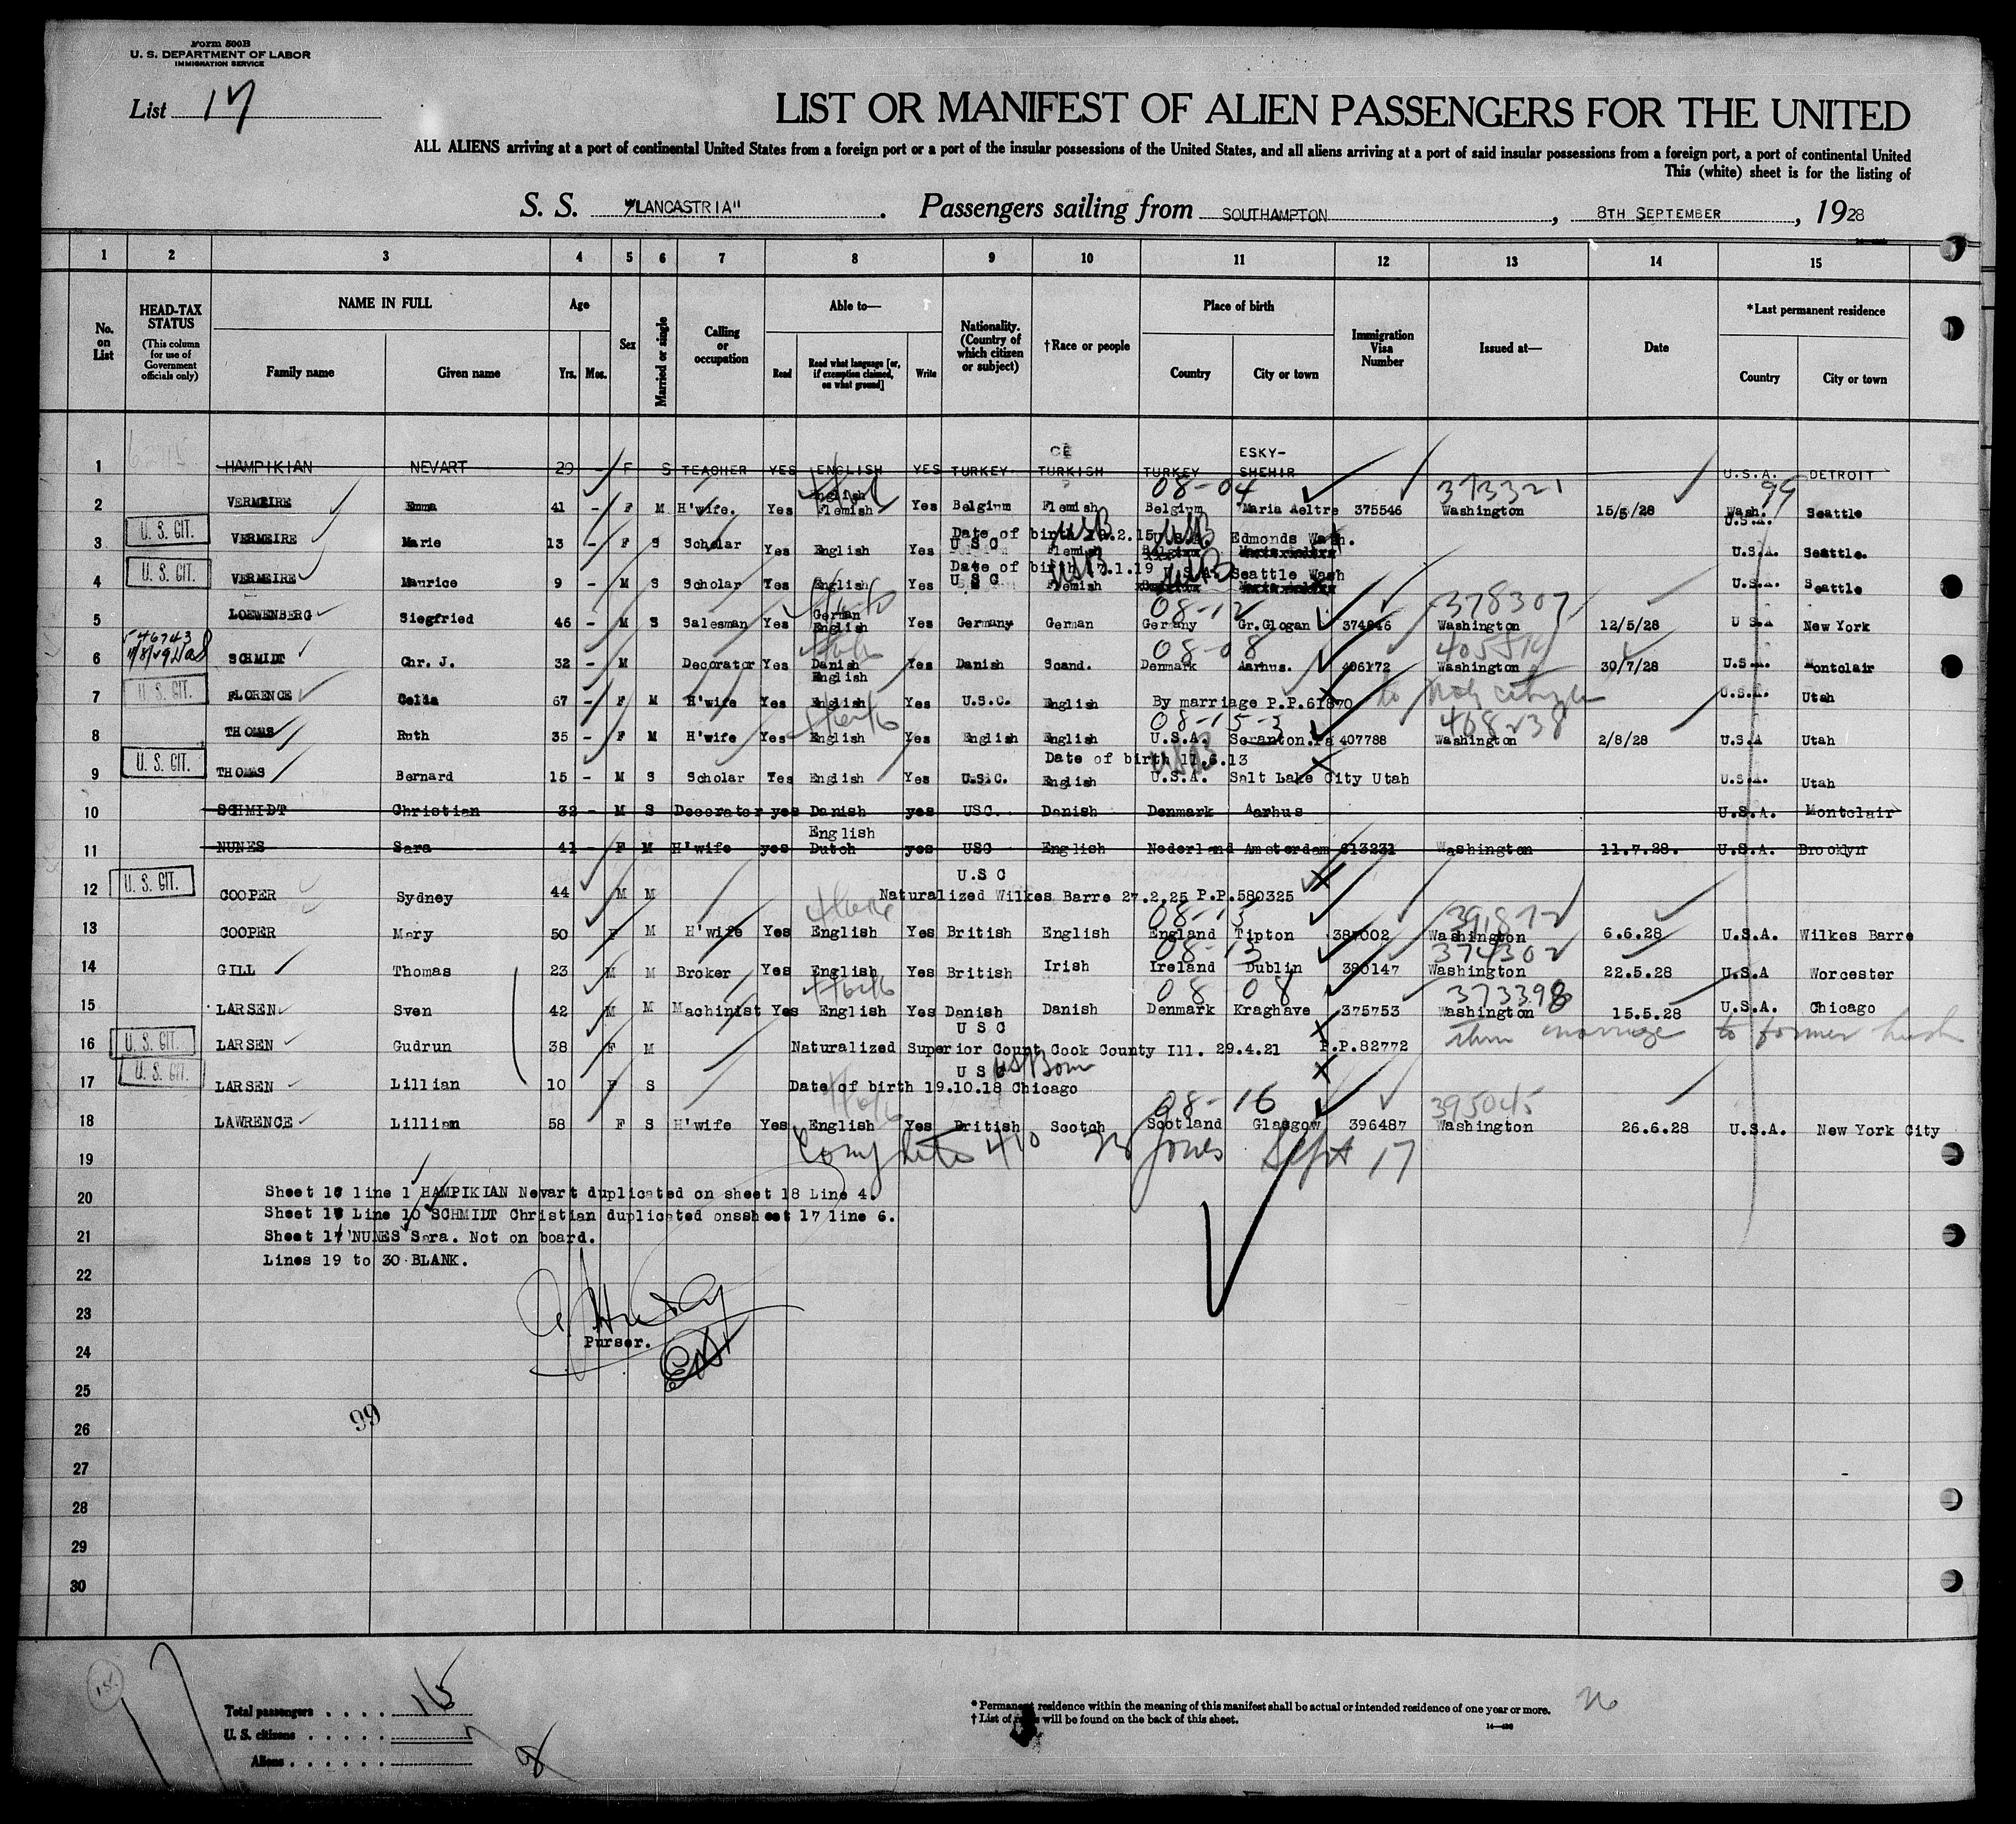 Form 500B
U. S. DEPARTMENT OF LABOR
IMMIGRATION SERVICE
List 17
LIST OR MANIFEST OF ALIEN PASSENGERS FOR THE UNITED
ALL ALIENS arriving at a port of continental United States from a foreign port or a port of the insular possessions of the United States, and all aliens arriving at a port of said insular possessions from a foreign port, a port of continental United
This (white) sheet is for the listing of
S. S. "LANCASTRIA" . Passengers sailing from SOUTHAMPTON , 8TH SEPTEMBER , 1928
1 2 3 4 5 6 7 8 9 10 11 12 13 14 15
No. on List
HEAD-TAX STATUS (This column for use of Government officials only)
NAME IN FULL Family name Given name
Age Yrs. Mos.
Sex
Married or single
Calling or occupation
Able to— Read Read what language [or, if exemption claimed, on what ground] Write
Nationality. (Country of which citizen or subject)
†Race or people
Place of birth Country City or town
Immigration Visa Number
Issued at—
Date
*Last permanent residence Country City or town
1 HAMPIKIAN NEVART 29 - F S TEACHER YES ENGLISH YES TURKEY TURKISH TURKEY ESKY-SHEHIR U.S.A. DETROIT
08-04 373321 99
2 VERMEIRE Emma 41 - F M H'wife. Yes English Flemish Yes Belgium Flemish Belgium Maria Aeltre 375546 Washington 15/5/28 Wash. U.S.A. Seattle
U. S. CIT.
3 VERMEIRE Marie 13 - F S Scholar Yes English Yes U S C Flemish U.S.A. Edmonds Wash. U.S.A. Seattle.
U. S. CIT.
4 VERMEIRE Maurice 9 - M S Scholar Yes English Yes U S C Flemish U.S.A. Seattle Wash U.S.A. Seattle
08-12 378307
5 LOEWENBERG Siegfried 46 - M S Salesman Yes German English Yes Germany German Germany Gr.Glogan 374846 Washington 12/5/28 U S A New York
08-08
6 SCHMIDT Chr. J. 32 - M Decorator Yes Danish English Yes Danish Scand. Denmark Aarhus. 406172 Washington 30/7/28 U.S.A. Montclair
U. S. CIT.
7 FLORENCE Celia 67 - F M H'wife Yes English Yes U.S.C. English By marriage P.P.61870 U.S.A. Utah
08-15-3 408238
8 THOMAS Ruth 35 - F M H'wife Yes English Yes English English U.S.A. Scranton.Pa 407788 Washington 2/8/28 U.S.A Utah
U. S. CIT. Date of birth 11.6.13
9 THOMAS Bernard 15 - M S Scholar Yes English Yes U.S.C. English U.S.A. Salt Lake City Utah U.S.A. Utah
10 SCHMIDT Christian 32 - M S Decorator yes Danish yes USC. Danish Denmark Aarhus U.S.A. Montclair
11 NUNES Sara 41 - F M H'wife yes English Dutch yes USC English Nederland Amsterdam 613231 Washington 11.7.28. U.S.A. Brooklyn
U. S. CIT. U.S C
12 COOPER Sydney 44 M M Naturalized Wilkes Barre 27.2.25 P.P.580325
08-13 391872
13 COOPER Mary 50 F M H'wife Yes English Yes British English England Tipton 387002 Washington 6.6.28 U.S.A. Wilkes Barre
08-13 374302
14 GILL Thomas 23 M M Broker Yes English Yes British Irish Ireland Dublin 380147 Washington 22.5.28 U.S.A Worcester
08-08 373398
15 LARSEN Sven 42 M M Machinist Yes English Yes Danish Danish Denmark Kraghave 375753 Washington 15.5.28 U.S.A. Chicago
U. S. CIT. U S C
16 LARSEN Gudrun 38 F M Naturalized Superior Count Cook County Ill. 29.4.21 P.P.82772 marriage to former
U. S. CIT. U S C US Born
17 LARSEN Lillian 10 F S Date of birth 19.10.18 Chicago
08-16 395045
18 LAWRENCE Lillian 58 F S H'wife Yes English Yes British Scotch Scotland Glasgow 396487 Washington 26.6.28 U.S.A. New York City
19 Complete Jones Sept 17
20 Sheet 17 line 1 HAMPIKIAN Nevart duplicated on sheet 18 Line 4.
Sheet 17 Line 10 SCHMIDT Christian duplicated onssheet 17 line 6.
21 Sheet 17 NUNES Sara. Not on board.
Lines 19 to 30 BLANK.
22
23
Purser.
24
25
26 99
27
28
29
30
Total passengers . . . . 15
U. S. citizens . . . . . 7
Aliens . . . . . . 8
* Permanent residence within the meaning of this manifest shall be actual or intended residence of one year or more.
† List of races will be found on the back of this sheet.